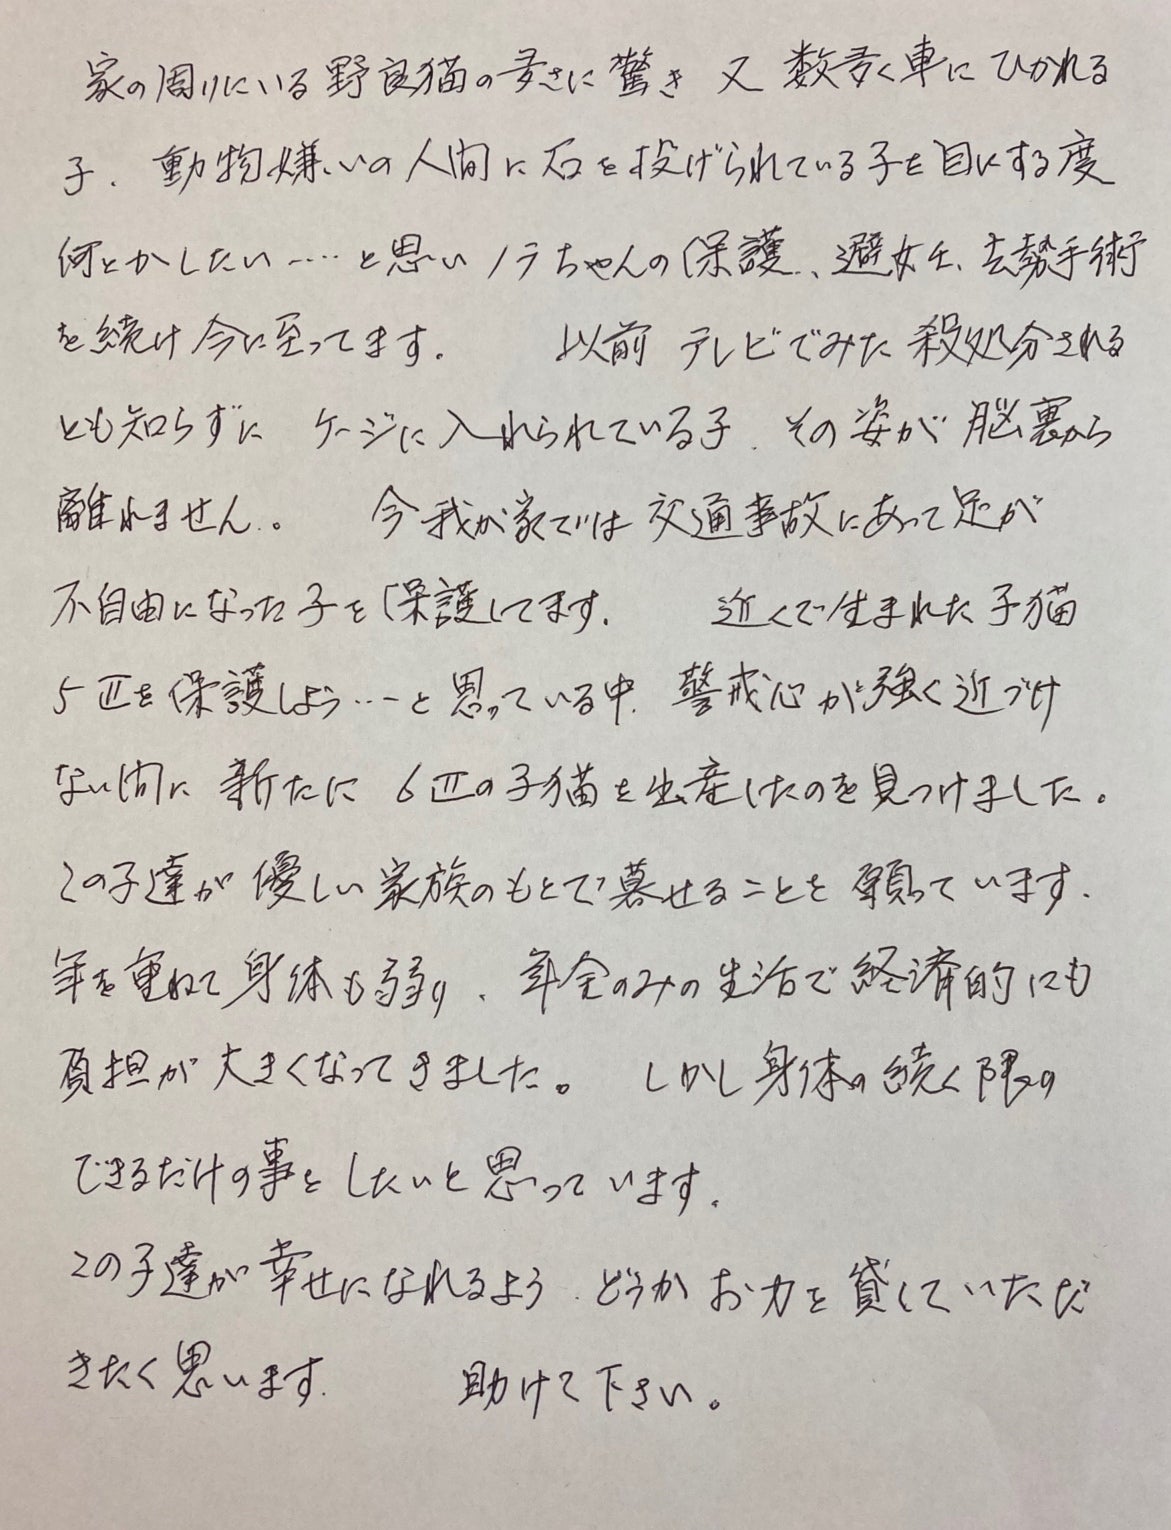 家の周りにいる野良猫の多さに驚き 又 数多く車にひかれる
子、動物嫌いの人間に石を投げられている子を目にする度
何とかしたい……と思いノラちゃんの保護、避妊、去勢手術
を続け今に至ってます。 以前 テレビでみた殺処分される
とも知らずに ケージに入れられている子、その姿が脳裏から
離れません。 今我が家では交通事故にあって足が
不自由になった子を保護してます。 近くで生まれた子猫
5匹を保護しよう…と思っている中、警戒心が強く近づけ
ない間に新たに 6匹の子猫を出産したのを見つけました。
この子達が優しい家族のもとで暮せることを願っています。
年を重ねて身体も弱り、年金のみの生活で経済的にも
負担が大きくなってきました。 しかし身体の続く限り
できるだけの事をしたいと思っています。
この子達が幸せになれるよう、どうかお力を貸していただ
きたく思います。 助けて下さい。